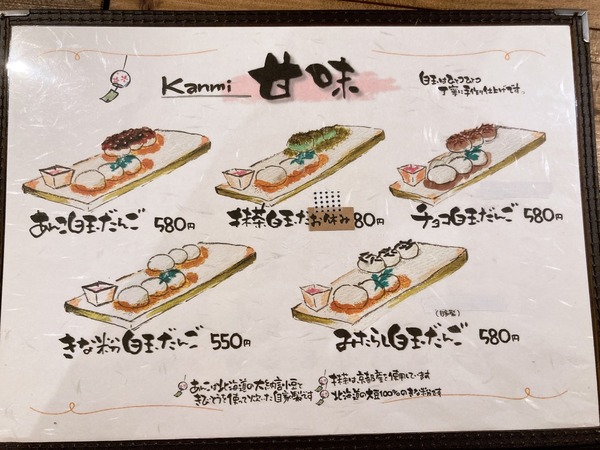 Kanmi 甘味
白玉はひとつひとつ
丁寧に手作り仕上げです。
あんこ白玉だんご 580円
抹茶白玉だ お休み 80円
チョコ白玉だんご 580円
きな粉白玉だんご 550円
(自家製)
みたらし白玉だんご 580円
あんこは北海道の大納言小豆で
きびとうを使って炊いた自家製です
抹茶は京都産を使用しています
北海道の大豆100%のきな粉です